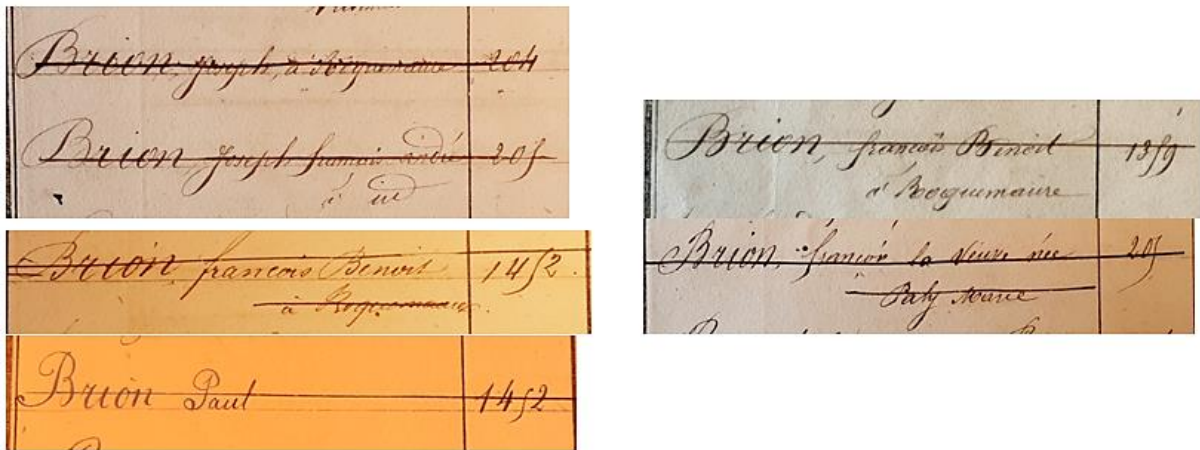 Brion, Joseph, à Roquemaure 204
Brion Joseph francois andré 205
à id
Brion francois Benoit 1452
à Roquemaure
Brion Paul 1452
Brion, francois Benoit 1359
à Roquemaure
Brion, francois la Veuve née 205
Paly Marie